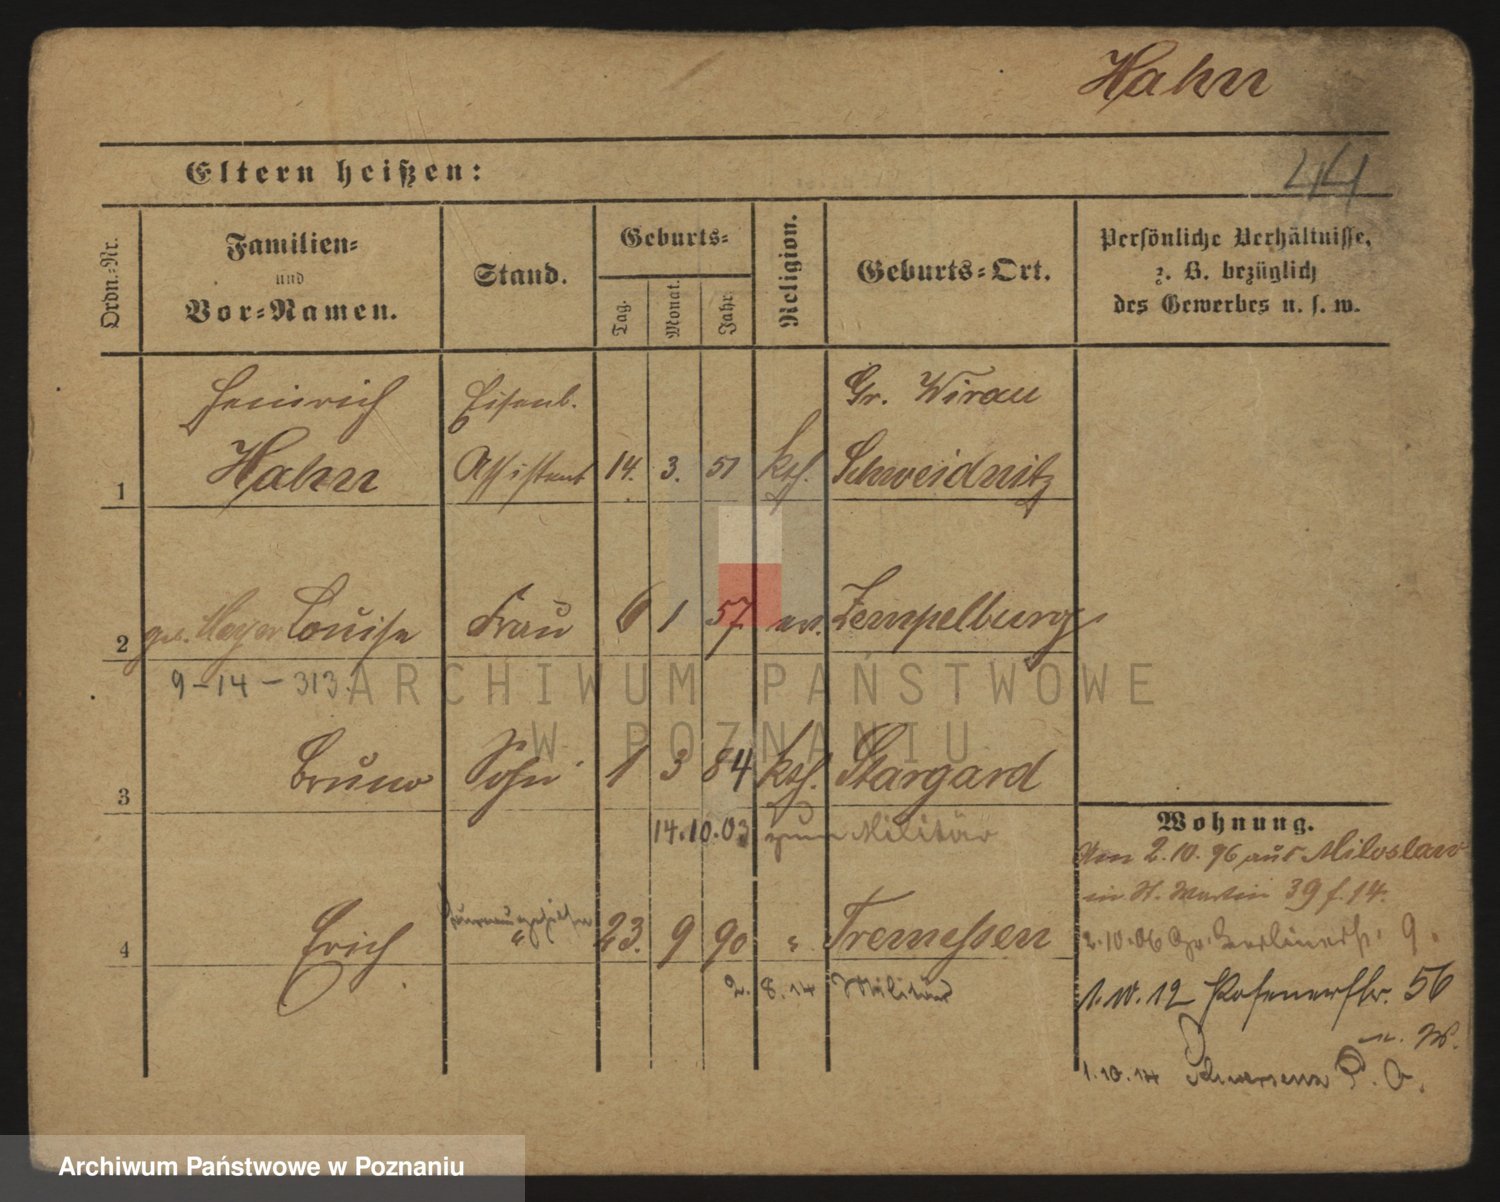 Hahn
Eltern heißen:
44
Ordn.-Nr.
Familien-
und
Vor-Namen.
Stand.
Geburts-
Tag.
Monat.
Jahr.
Religion.
Geburts-Ort.
Persönliche Verhältnisse,
z. B. bezüglich
des Gewerbes u. s. w.
Heinrich Eisenb. Gr. Wirau
1 Hahn Assistent 14. 3. 51 kth. Schweidnitz
2 geb. Meyer Louise Frau 6 1 57 ev. Zempelburg
9-14-313.
3 Bruno Sohn 1 3 84 kth. Stargard
14.10.03 zum Militär
4 Erich " 23. 9 90 " Tremessen
2. 8. 14 Militär
Wohnung.
Am 2.10.96 aus Miloslaw
in St. Martin 39 f. 14.
2.10.06 Gr. Berlinerstr. 9.
1.10.12 Posenerstr. 56
n. W.
1.10.14 P. O.
ARCHIWUM PAŃSTWOWE
W POZNANIU
Archiwum Państwowe w Poznaniu